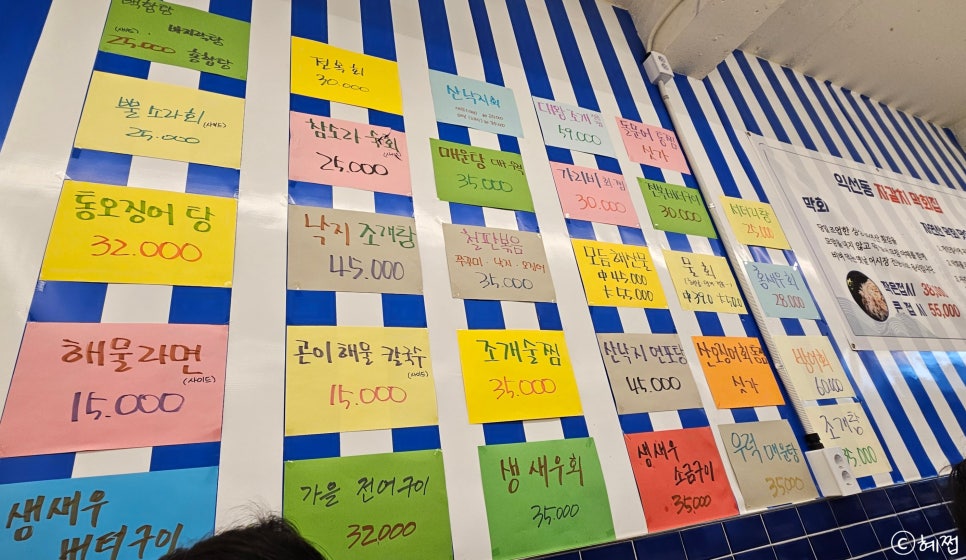 백합탕
(사이드) 바지락탕
25,000 홍합탕
뿔소라회
(사이드)
25,000
통오징어 탕
32.000
해물라면
(사이드)
15.000
생새우
버터구이
전복회
30.000
참소라 숙회
(사이드)
25,000
낙지 조개탕
45.000
곤이해물 칼국수
(사이드)
15.000
가을 전어구이
32000
산낙지회
매운탕
35,000
철판볶음
쭈꾸미 · 낙지 · 오징어
35,000
조개술찜
35.000
생새우회
35,000
대왕조개찜
49.000
가리비회찜
30,000
모듬해산물
小45,000
大55,000
산낙지연포탕
45,000
생새우
소금구이
35,000
돌문어 통찜
싯가
전복버터구이
30,000
물회
산오징어회통찜
싯가
우럭매운탕
35000
25,000
홍새우회
28,000
60,000
조개탕
익선동 자갈치 막회집
막회
작은접시 38,000
큰접시 55,000
ⓒ혜쩝